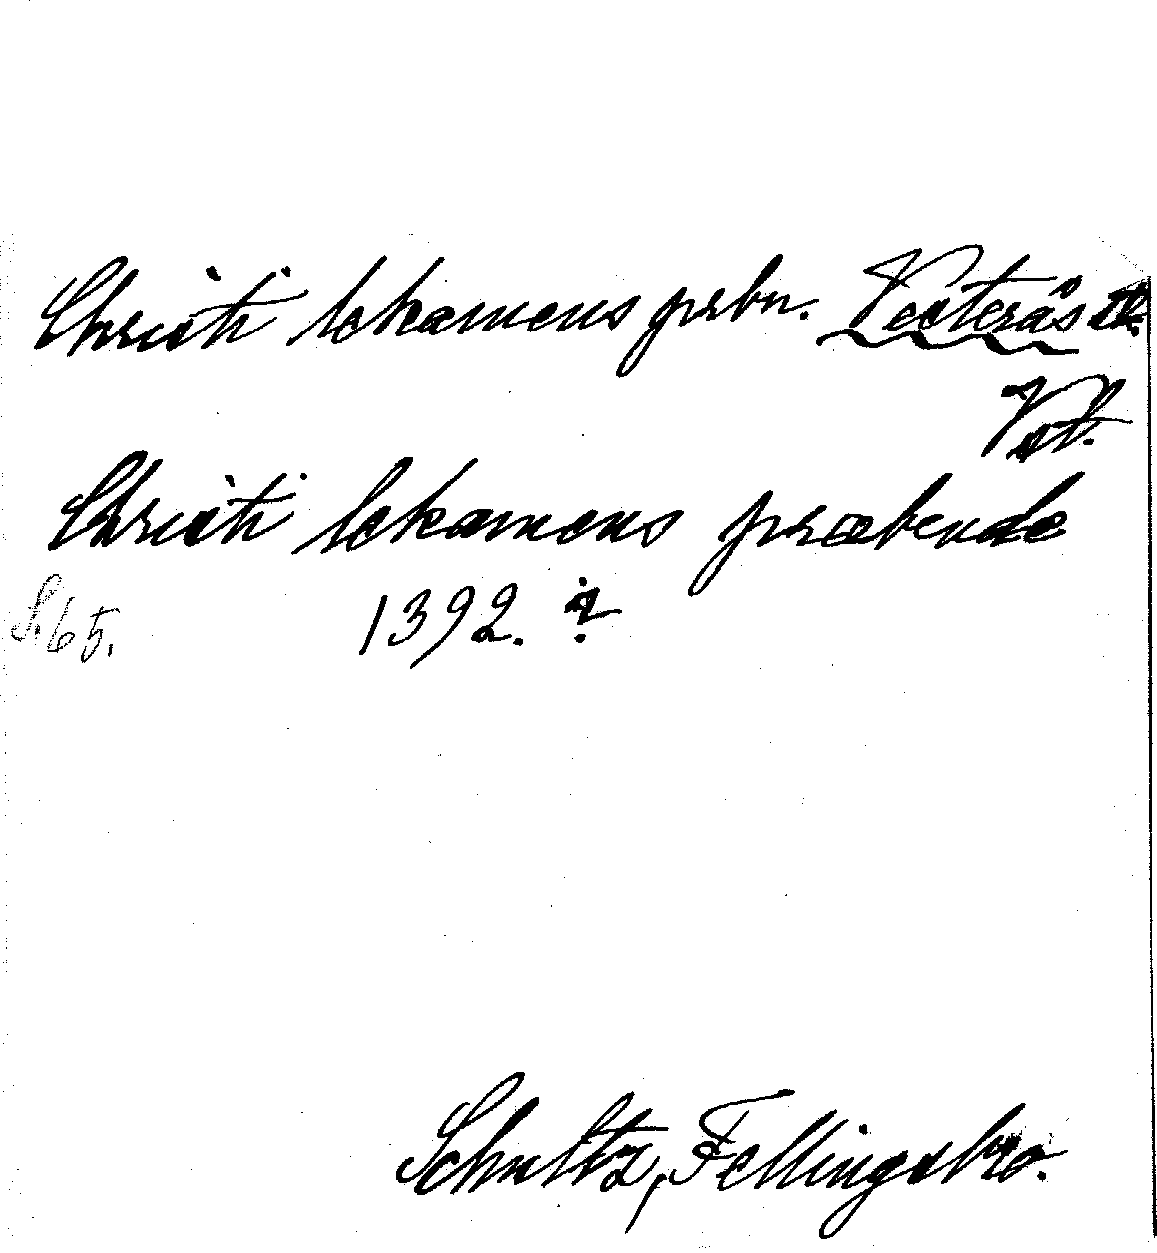 Christi lekamens prbn. Vesterås st.
Vstl.
Christi lekamens præbende
S. 65. 1392. ?
Schultz, Fellingsbro.